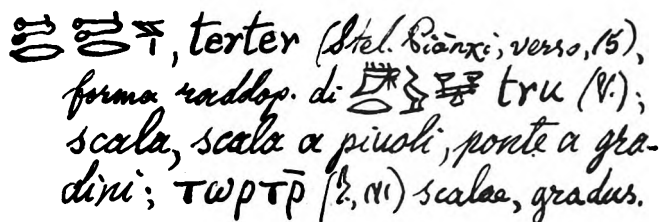 , terter (Stel. Piānχi, verso, 15),
forma raddop. di tru (V.);
scala, scala a piuoli, ponte a gra-
dini; ⲧⲱⲣⲧⲣ̄ (, ⲛⲓ) scalae, gradus.